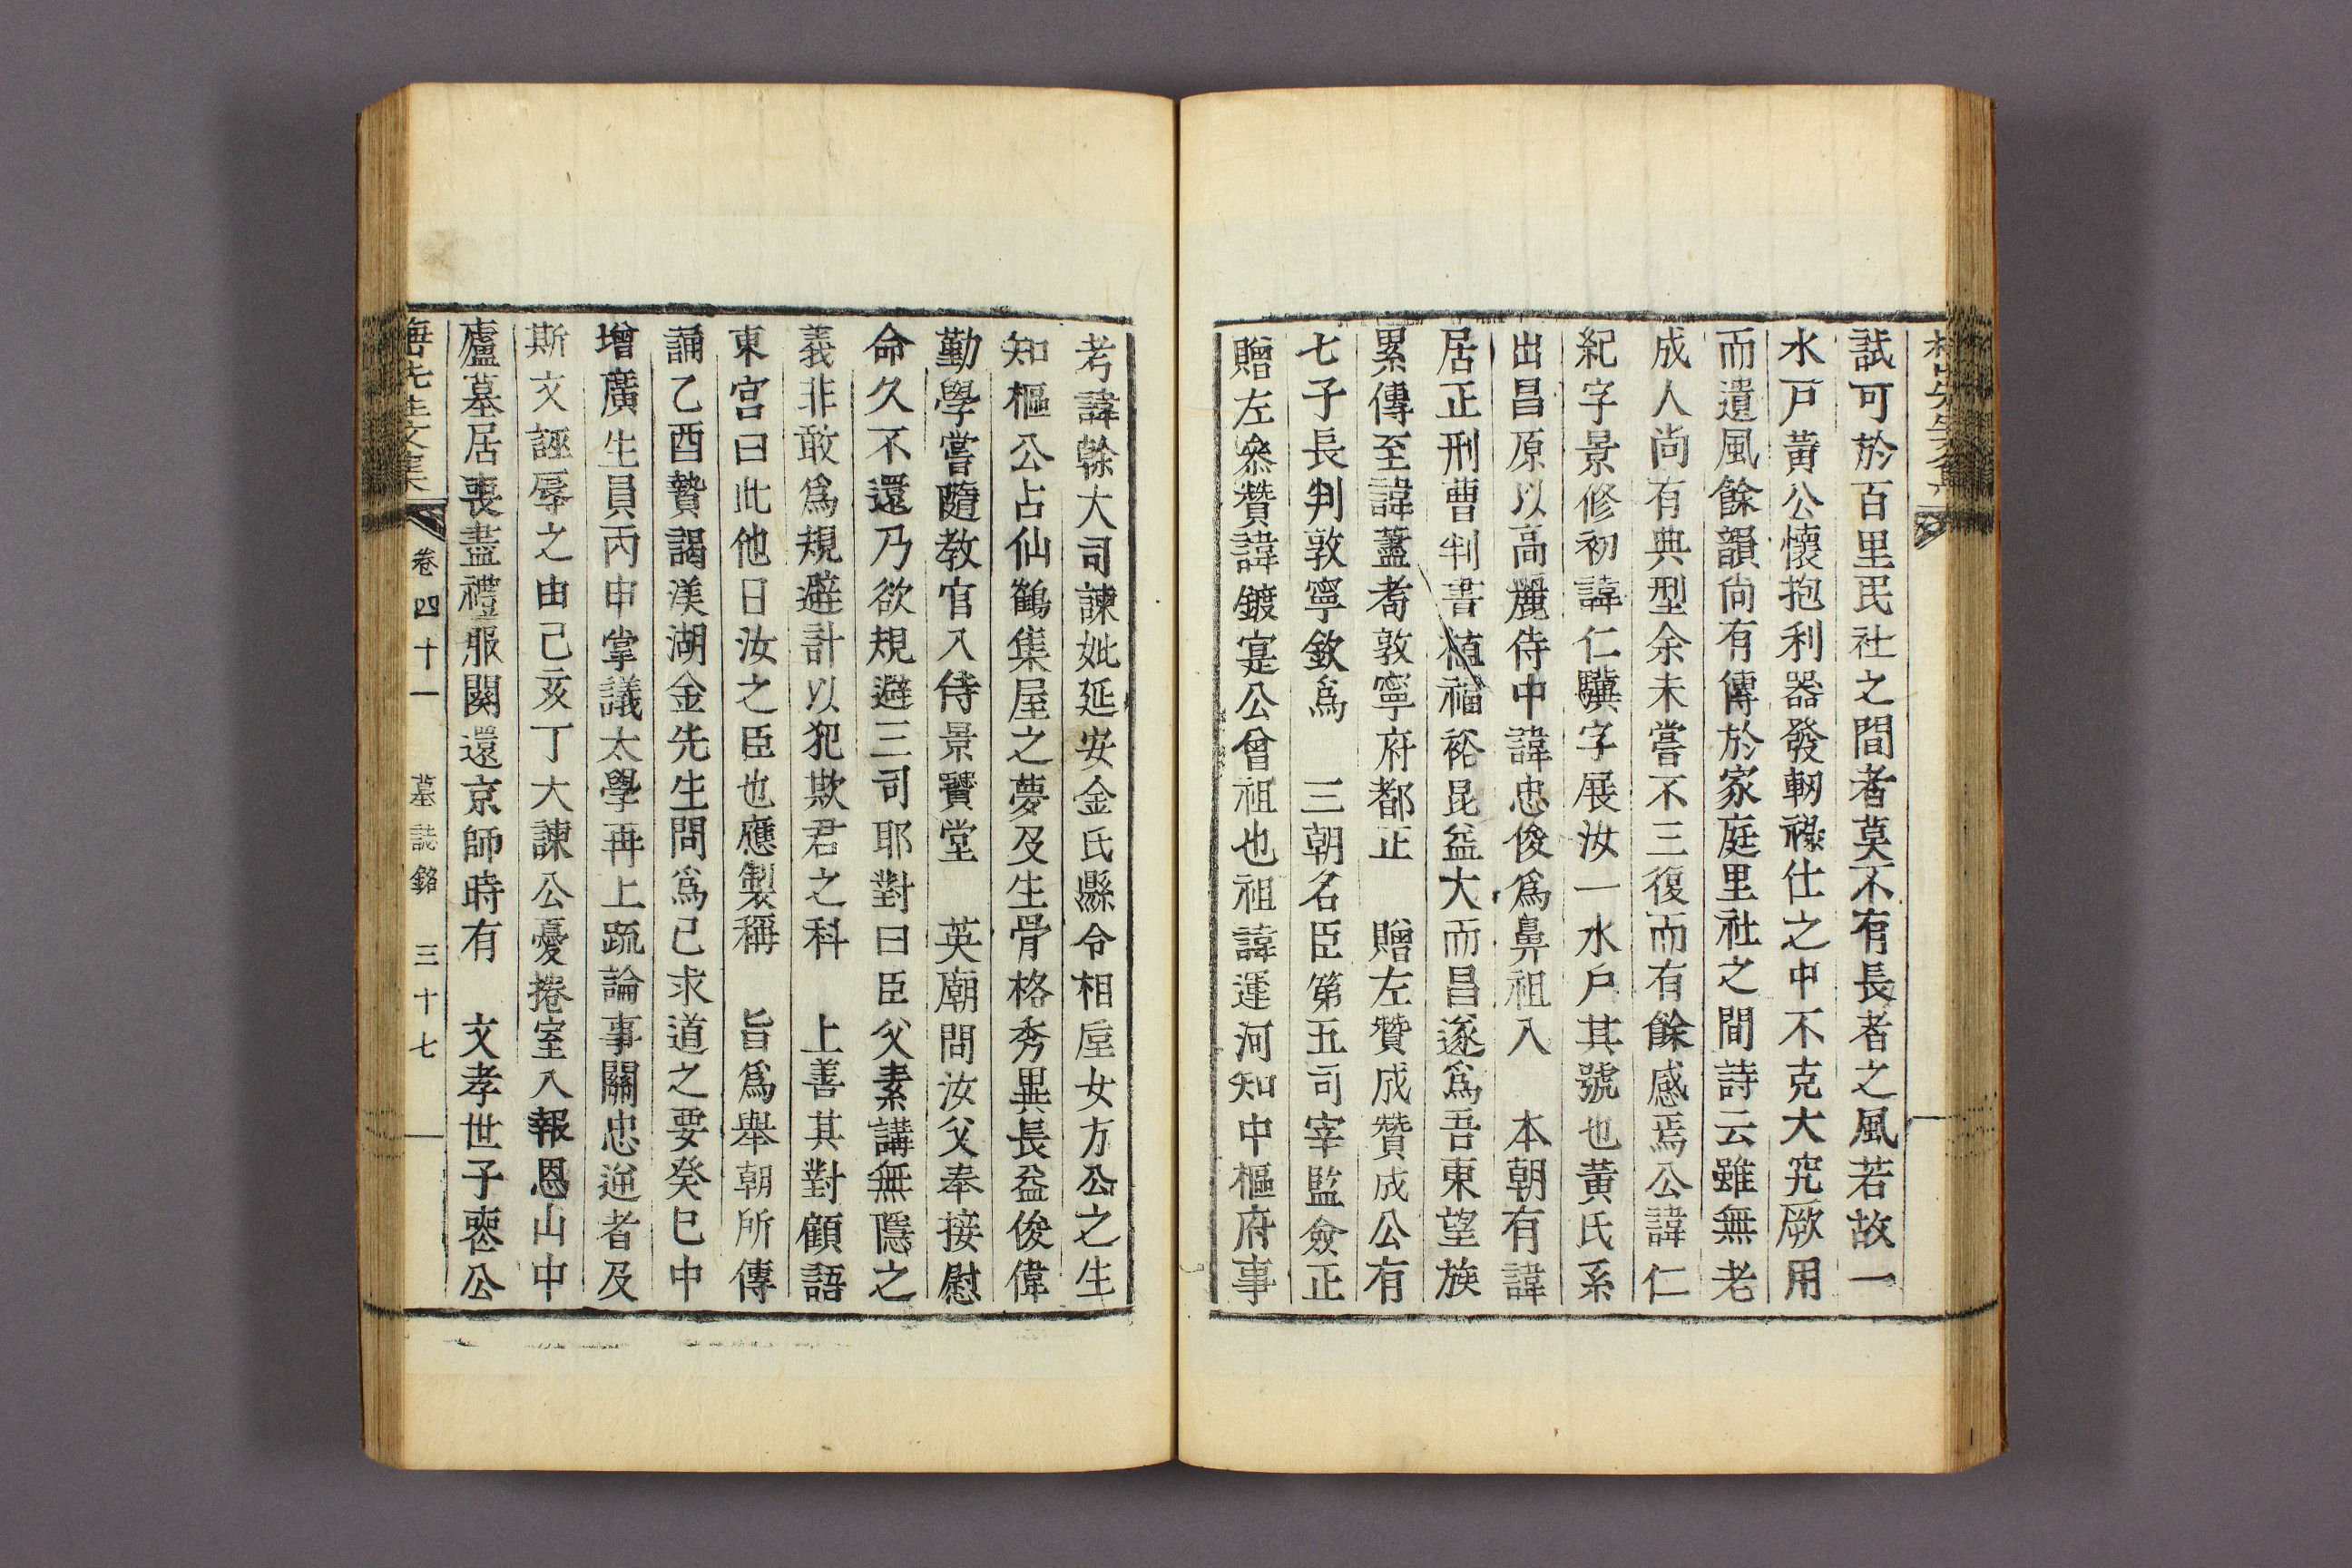 試可於百里民社之間者莫不有長者之風若故一
水戶黃公懷抱利器發軔祿仕之中不克大究厥用
而遺風餘韻尙有傳於家庭里社之間詩云雖無老
成人尙有典型余未嘗不三復而有餘感焉公諱仁
紀字景修初諱仁驥字展汝一水戶其號也黃氏系
出昌原以高麗侍中諱忠俊爲鼻祖入 本朝有諱
居正刑曹判書植福裕昆益大而昌遂爲吾東望族
累傳至諱藎耈敦寧府都正 贈左贊成贊成公有
七子長判敦寧欽爲 三朝名臣第五司宰監僉正
贈左叅贊諱鍍寔公曾祖也祖諱運河知中樞府事
考諱榦大司諫妣延安金氏縣令相度女方公之生
知樞公占仙鶴集屋之夢及生骨格秀異長益俊偉
勤學嘗隨敎官入侍景賢堂 英廟問汝父奉接慰
命久不還乃欲規避三司耶對曰臣父素講無隱之
義非敢爲規避計以犯欺君之科 上善其對顧語
東宮曰此他日汝之臣也應製稱 旨爲舉朝所傳
誦乙酉贄謁渼湖金先生問爲己求道之要癸巳中
增廣生員丙申掌議太學再上疏論事關忠逆者及
斯文誣辱之由己亥丁大諫公憂捲室入報恩山中
廬墓居喪盡禮服闋還京師時有 文孝世子喪公
先生文集 卷四十一 墓誌銘 三十七